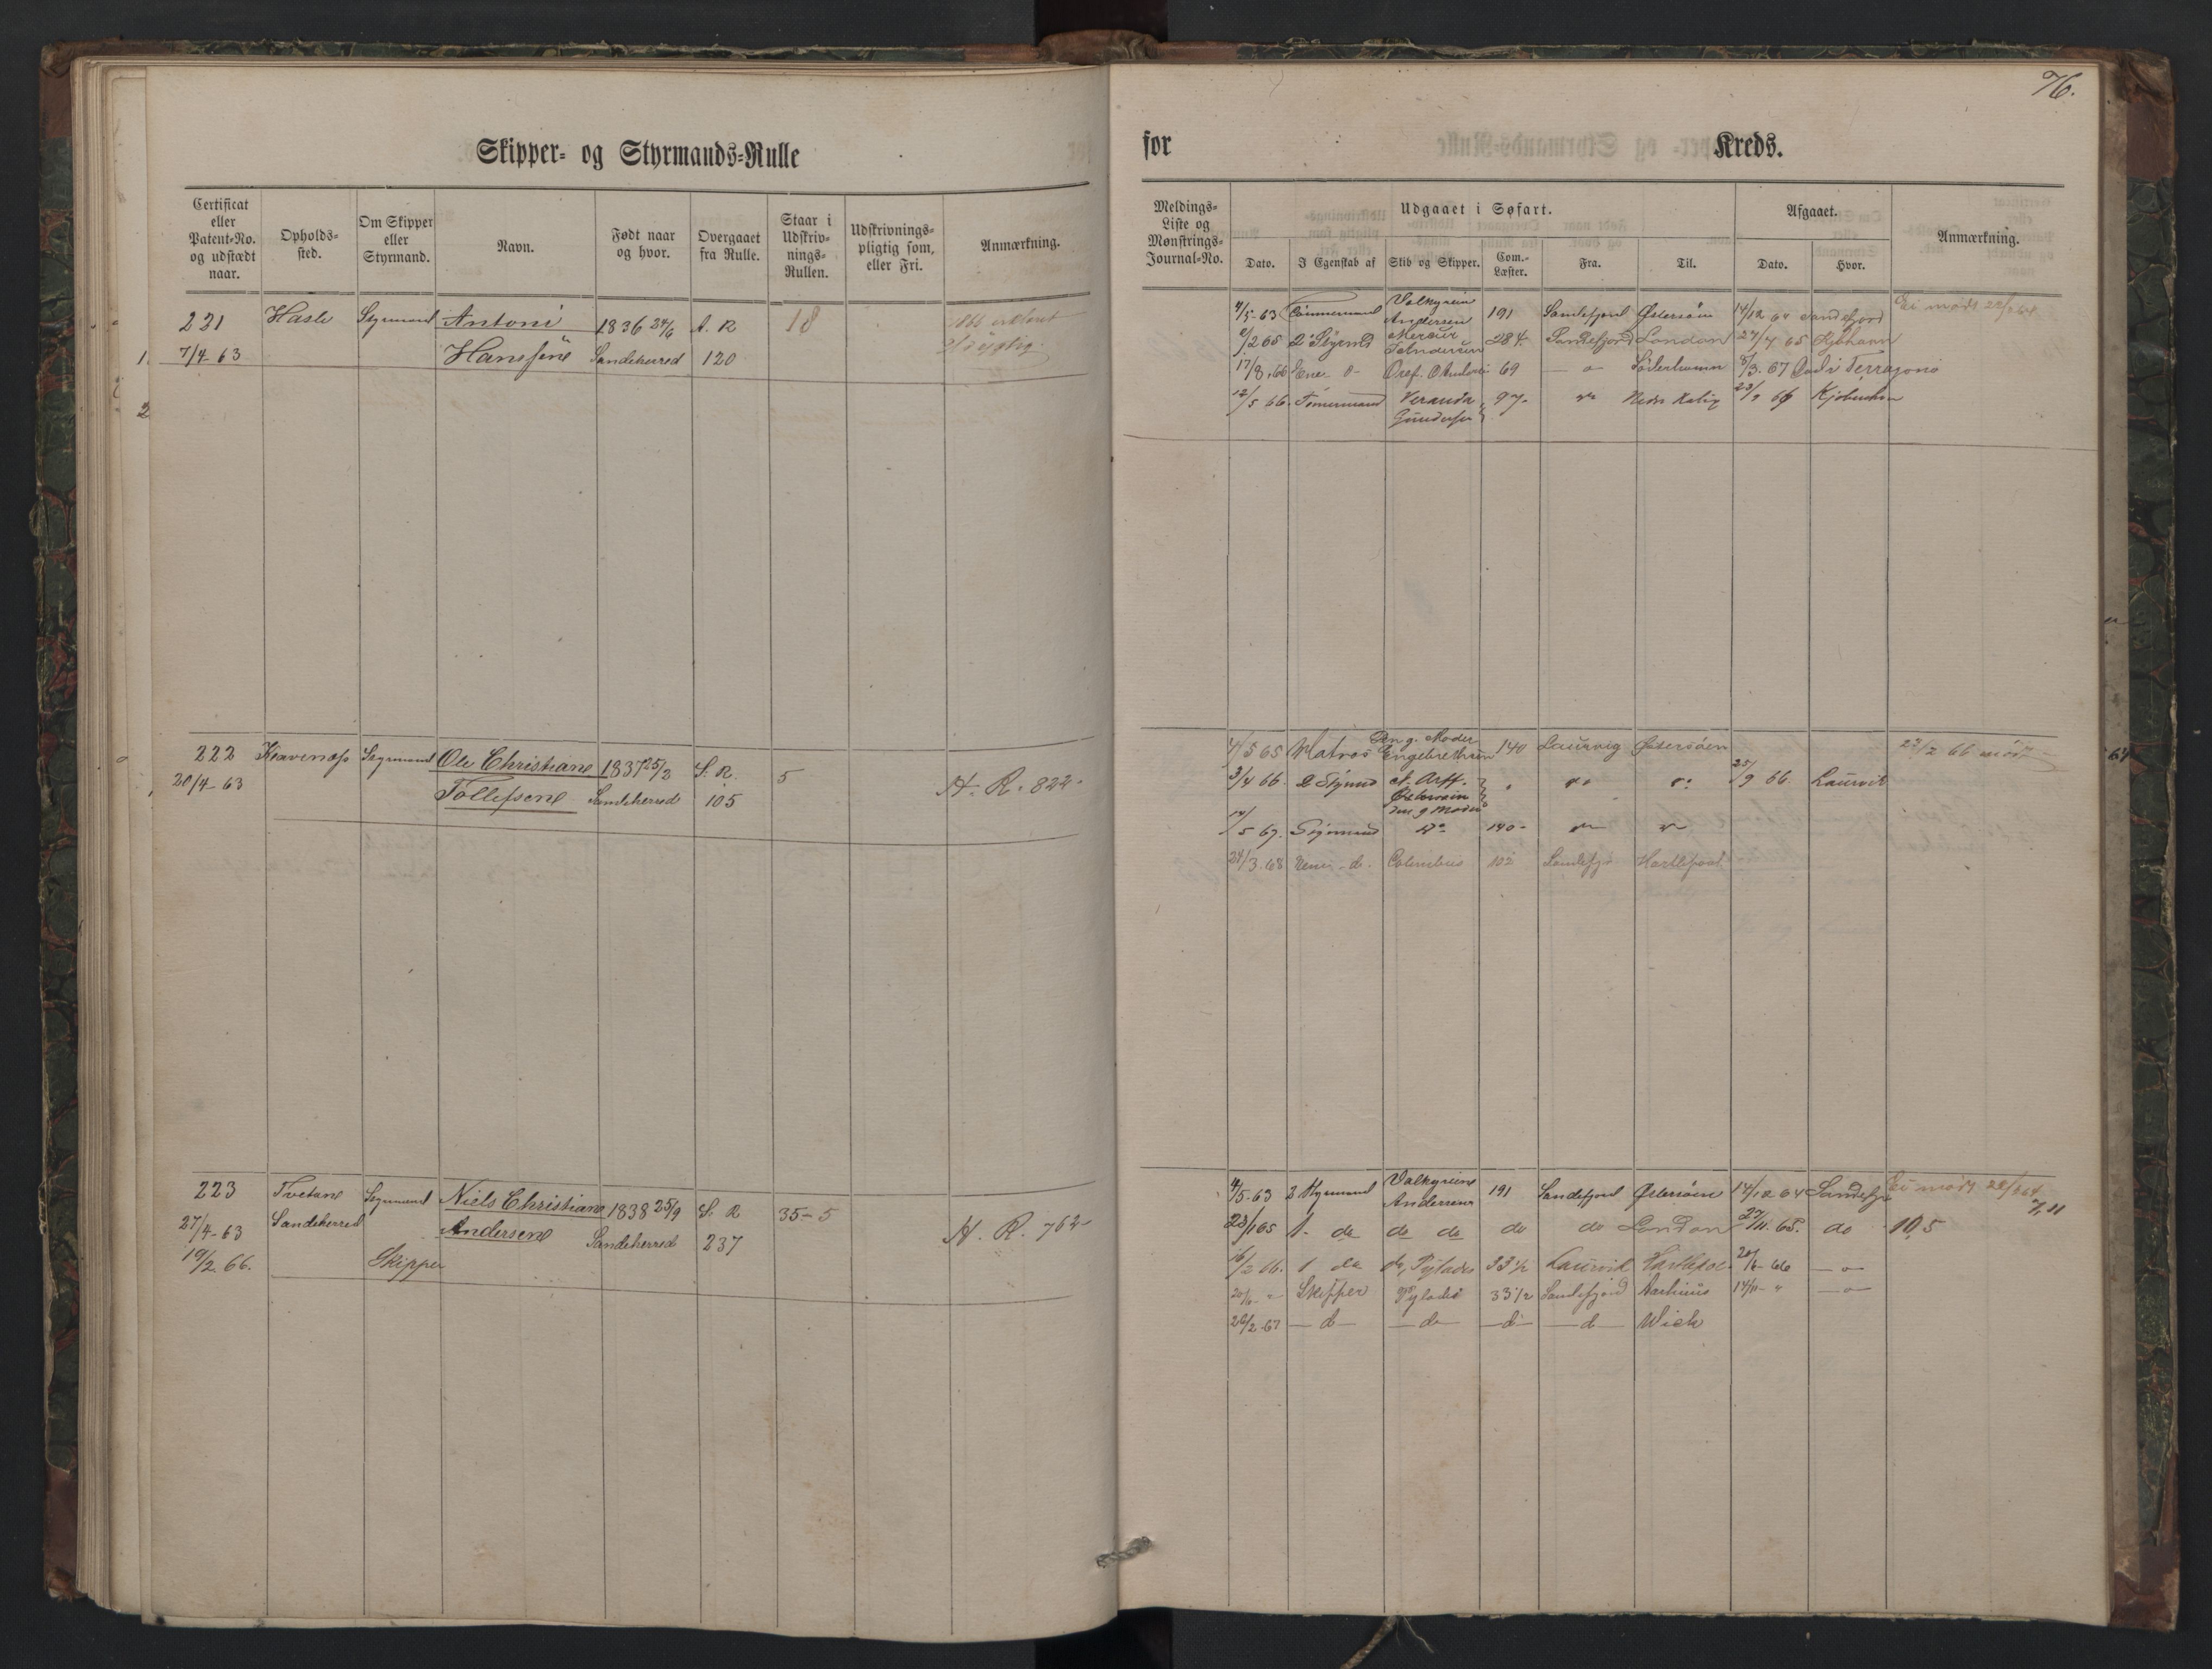 76.
Skipper- og Styrmands-Rulle
for Kreds.
Certificat eller Patent-No. og udstædt naar.
Opholds-sted.
Om Skipper eller Styrmand.
Navn.
Født naar og hvor.
Overgaaet fra Rulle.
Staar i Udskriv-nings-Rullen.
Udskrivnings-pligtig som, eller Fri.
Anmærkning.
Meldings-Liste og Mønstrings-Journal-No.
Udgaaet i Søfart.
Dato.
I Egenskab af
Skib og Skipper.
Com.-Læster.
Fra.
Til.
Afgaaet.
Dato.
Hvor.
Anmærkning.
221 Hasle Styrmand Antoni 1836 24/6 A. R 18
7/4-63 Hanssen Sandeherred 120
4/5-63 Tømmermand Valkyrien Andersen 191 Sandefjord Østersøen 14/12 64 Sandefjord Ei mødt 22/2 64
2/2 65 2 Styrmd Merkur 284 Sandefjord London 27/7 65 Kjøbhavn
17/8.66 Ene d- 69 — o Söderhamn 5/3. 67 Død i Terragona
12/5 66. Tømermand Veranda Gundersen 97- Neder Kalix 23/9 66 Kjøbenhavn
222 Styrmand Ole Christian 1837 25/2 S. R. 5
20/4-63 Tollefsen Sandeherred 105 H. R. 822-
4/5 65 Matros Den g. Moder Engebrethsen 140 Laurvig Østersøen 22/2 66 mødt
3/4 66. 2 Styrmd 25/9 66. Laurvik
Den g Moder
/5 67. Styrmand Do 140-
24/3.68 d. Columbus 102 Sandefj Hartlepool
223 Tvetane Styrmand Niels Christian 1838 25/9 S. R 35-5
27/4-63 Sandeherred Andersen Sandeherred 237 H. R. 762-
19/2. 66. Skipper
4/5-63 2 Styrmand Valkyrien Andersen 191 Sandefjord Østersøen 14/12 64 Sandefj Ei mødt 22/2 64
7/11
23/1 65 1. do do do do do London 27/11 65. do 10,5
16/2 66. 1 do do, Pylades 33 1/2 Laurvik Hartlepool 20/6-66 —o—
20/6- " Skipper Pylades 33 1/2 Sandefjord Aarhuus 14/11- " —o—
26/2-67 —d— —do —d— —d— Wick